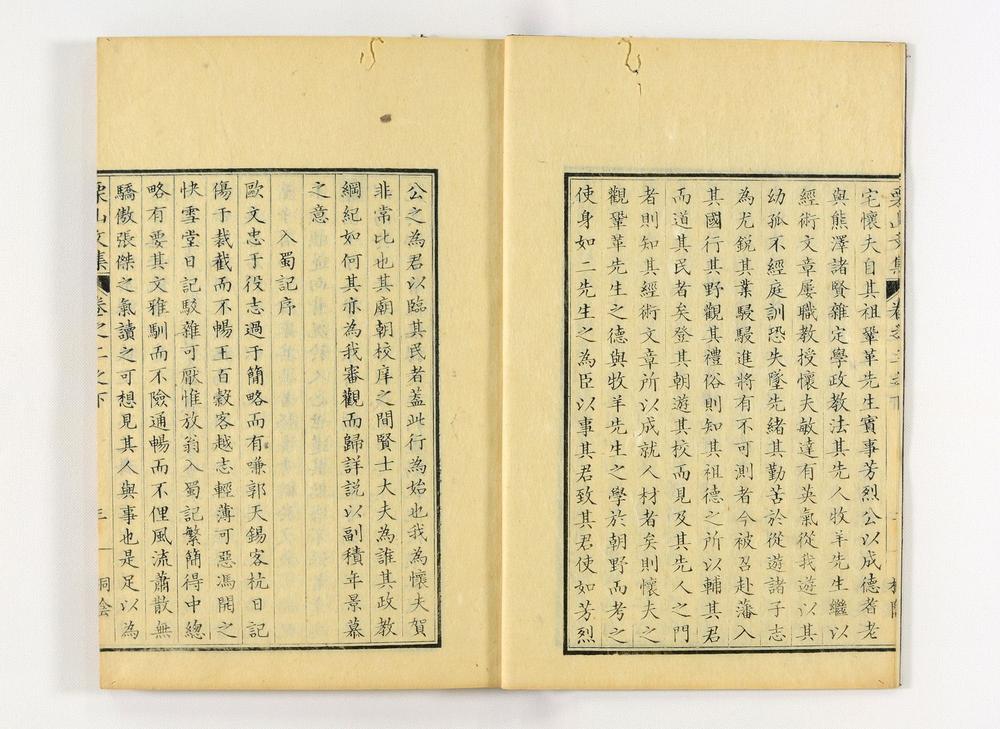 宅懷夫自其祖鞏革先生賓事芳烈公以成德耆老
與熊澤諸賢雜定學政教法其先人牧羊先生繼以
經術文章屢職教授懷夫敏達有英氣從我遊以其
幼孤不經庭訓恐失墜先緒其勤苦於從遊諸子志
為尤銳其業駸駸進將有不可測者今被召赴藩入
其國行其野觀其禮俗則知其祖德之所以輔其君
而道其民者矣登其朝遊其校而見及其先人之門
者則知其經術文章所以成就人材者矣則懷夫之
觀鞏革先生之德與牧羊先生之學於朝野而考之
使身如二先生之為臣以事其君致其君使如芳烈
公之為君以臨其民者蓋此行為始也我為懷夫賀
非常比也其廟朝校庠之間賢士大夫為誰其政教
綱紀如何其亦為我審觀而歸詳說以副積年景慕
之意
入蜀記序
歐文忠于役志過于簡略而有嗛郭天錫客杭日記
傷于裁截而不暢王百穀客越志輕薄可惡馮開之
快雪堂日記駁雜可厭惟放翁入蜀記繁簡得中總
略有要其文雅馴而不險通暢而不俚風流蕭散無
驕傲張傑之氣讀之可想見其人與事也是足以為
栗山文集 卷之二之下 桐陰